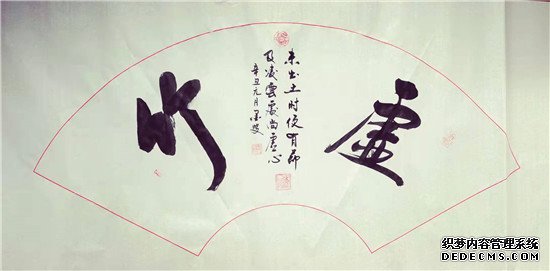 虚竹
未出土时便有節
及凌雲處尚虚心
辛丑元月
织梦内容管理系统
DEDECMS.COM